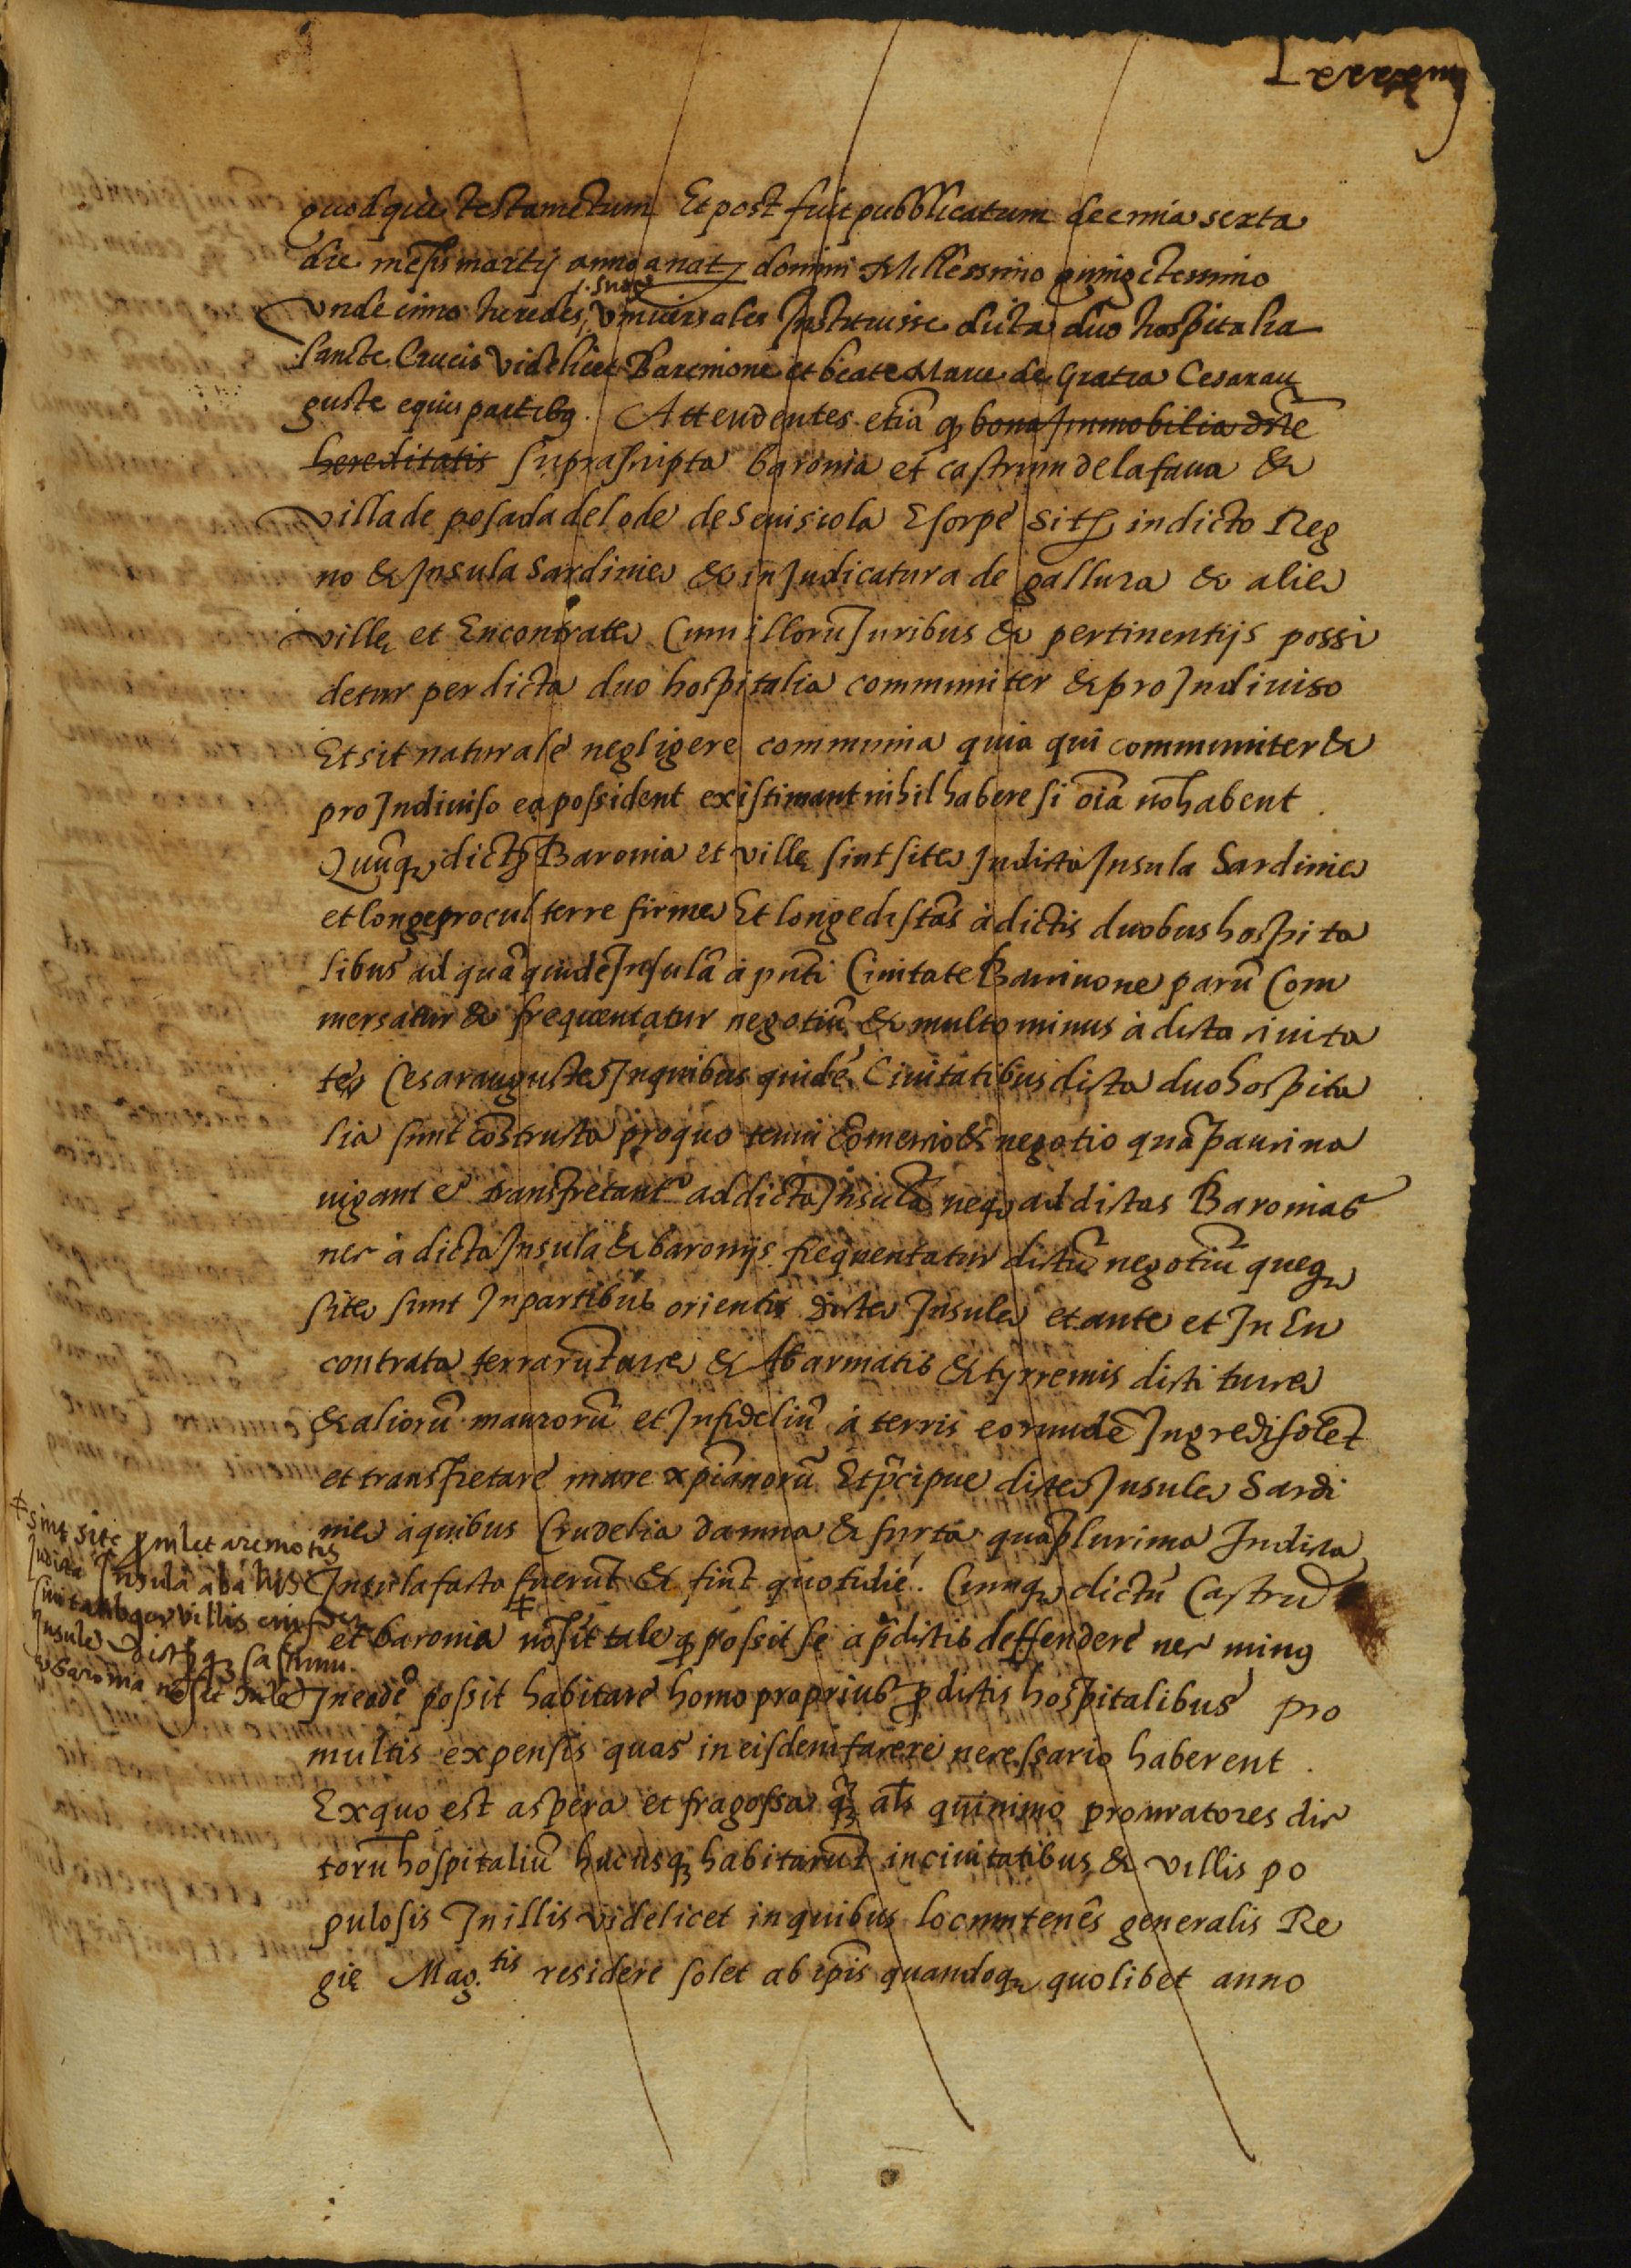 Lxxxxiiij
quodquie testametum Et post fuit pubblicatum decmia sexta
die mesis martij anno a nat domini Millessimo quingetessimo
unde cimo heredes suos universales Jnstituisse dicta duo hospitalia
sancte Crucis videlicet Barcinone et beate Marie de Gratia Cesarau
guste equis partibq. Attendentes etiã q bona Jnmobilia dicte
hereditatis suprascripta baronia et castrum de la faua &
villa de posada de lode de Seuisiola Esorpe sitę in dicto Reg
no & Jnsula Sardinie & in Judicatura de gallura & alie
ville et Encontrate Cum illorũ Juribus & pertinentijs possi
detur per dicta duo hospitalia communiter & pro Jndiuiso
Et sit naturale negligere communia quia qui communiter &
pro Jndiuiso ea possident existimant nihil habere si oĩa nõ habent.
Quũq dictę Baronia et ville sint site Jn dicta Jnsula Sardinie
et longe procul terre firme Et longe distãs à dictis duobus hospita
libus ad quã quidẽ Jnsulã à pñti Ciuitate Barcinone parũ Com
mersatur & frequentatur negotiũ & multo minus à dicta ciuita
te Cesarauguste Jn quibus quidẽ Ciuitatibus dicta duo hospita
lia sunt cõstructa pro quo tenui cõmertio & negotio quã pauci na
uigant & transfretant ad dictã Jnsulã neq ad dictas Baronias
nec à dicta Jnsula & baronijs frequentatur dictũ negotiũ queq
site sunt Jn partibus orientis dicte Jnsule et ante et Jn En
contrata terrarũ turce & Ab armatis & tyrremis dicti turce
& aliorũ maurorũ et Jnfideliũ à terris eorundẽ Jngredi solẽt
et transfretare mare xpianorũ Et p̃cipue dicte Jnsule Sardi
nie à quibus Crudelia damna & furta quãplurima Jn dicta
Jnsula facta fuerũt & fiũt quotidie. Cumq dictũ Castrũ
et baronia nõ sit tale q possit se à p̃dictis deffendere nec minq
Jn eadẽ possit habitare homo proprius p dictis hospitalibus pro
multis expensis quas in eisdem facere necessario haberent.
Ex quo est aspera et fragossa qz als quinimo procuratores dic
torũ hospitaliũ hucusqz habitarũt in ciuitatibus & villis po
pulosis Jn illis videlicet in quibus locumtenẽs generalis Re
gię Mag.tis residere solet ab ipis quandoq quolibet anno
+ sint site p̃mlet aremotis
Jndicta Jnsula ab alijs
Ciuitatibqz villis eiusdem
Jnsule dictũqz castrum
& baronia nõ sit tale